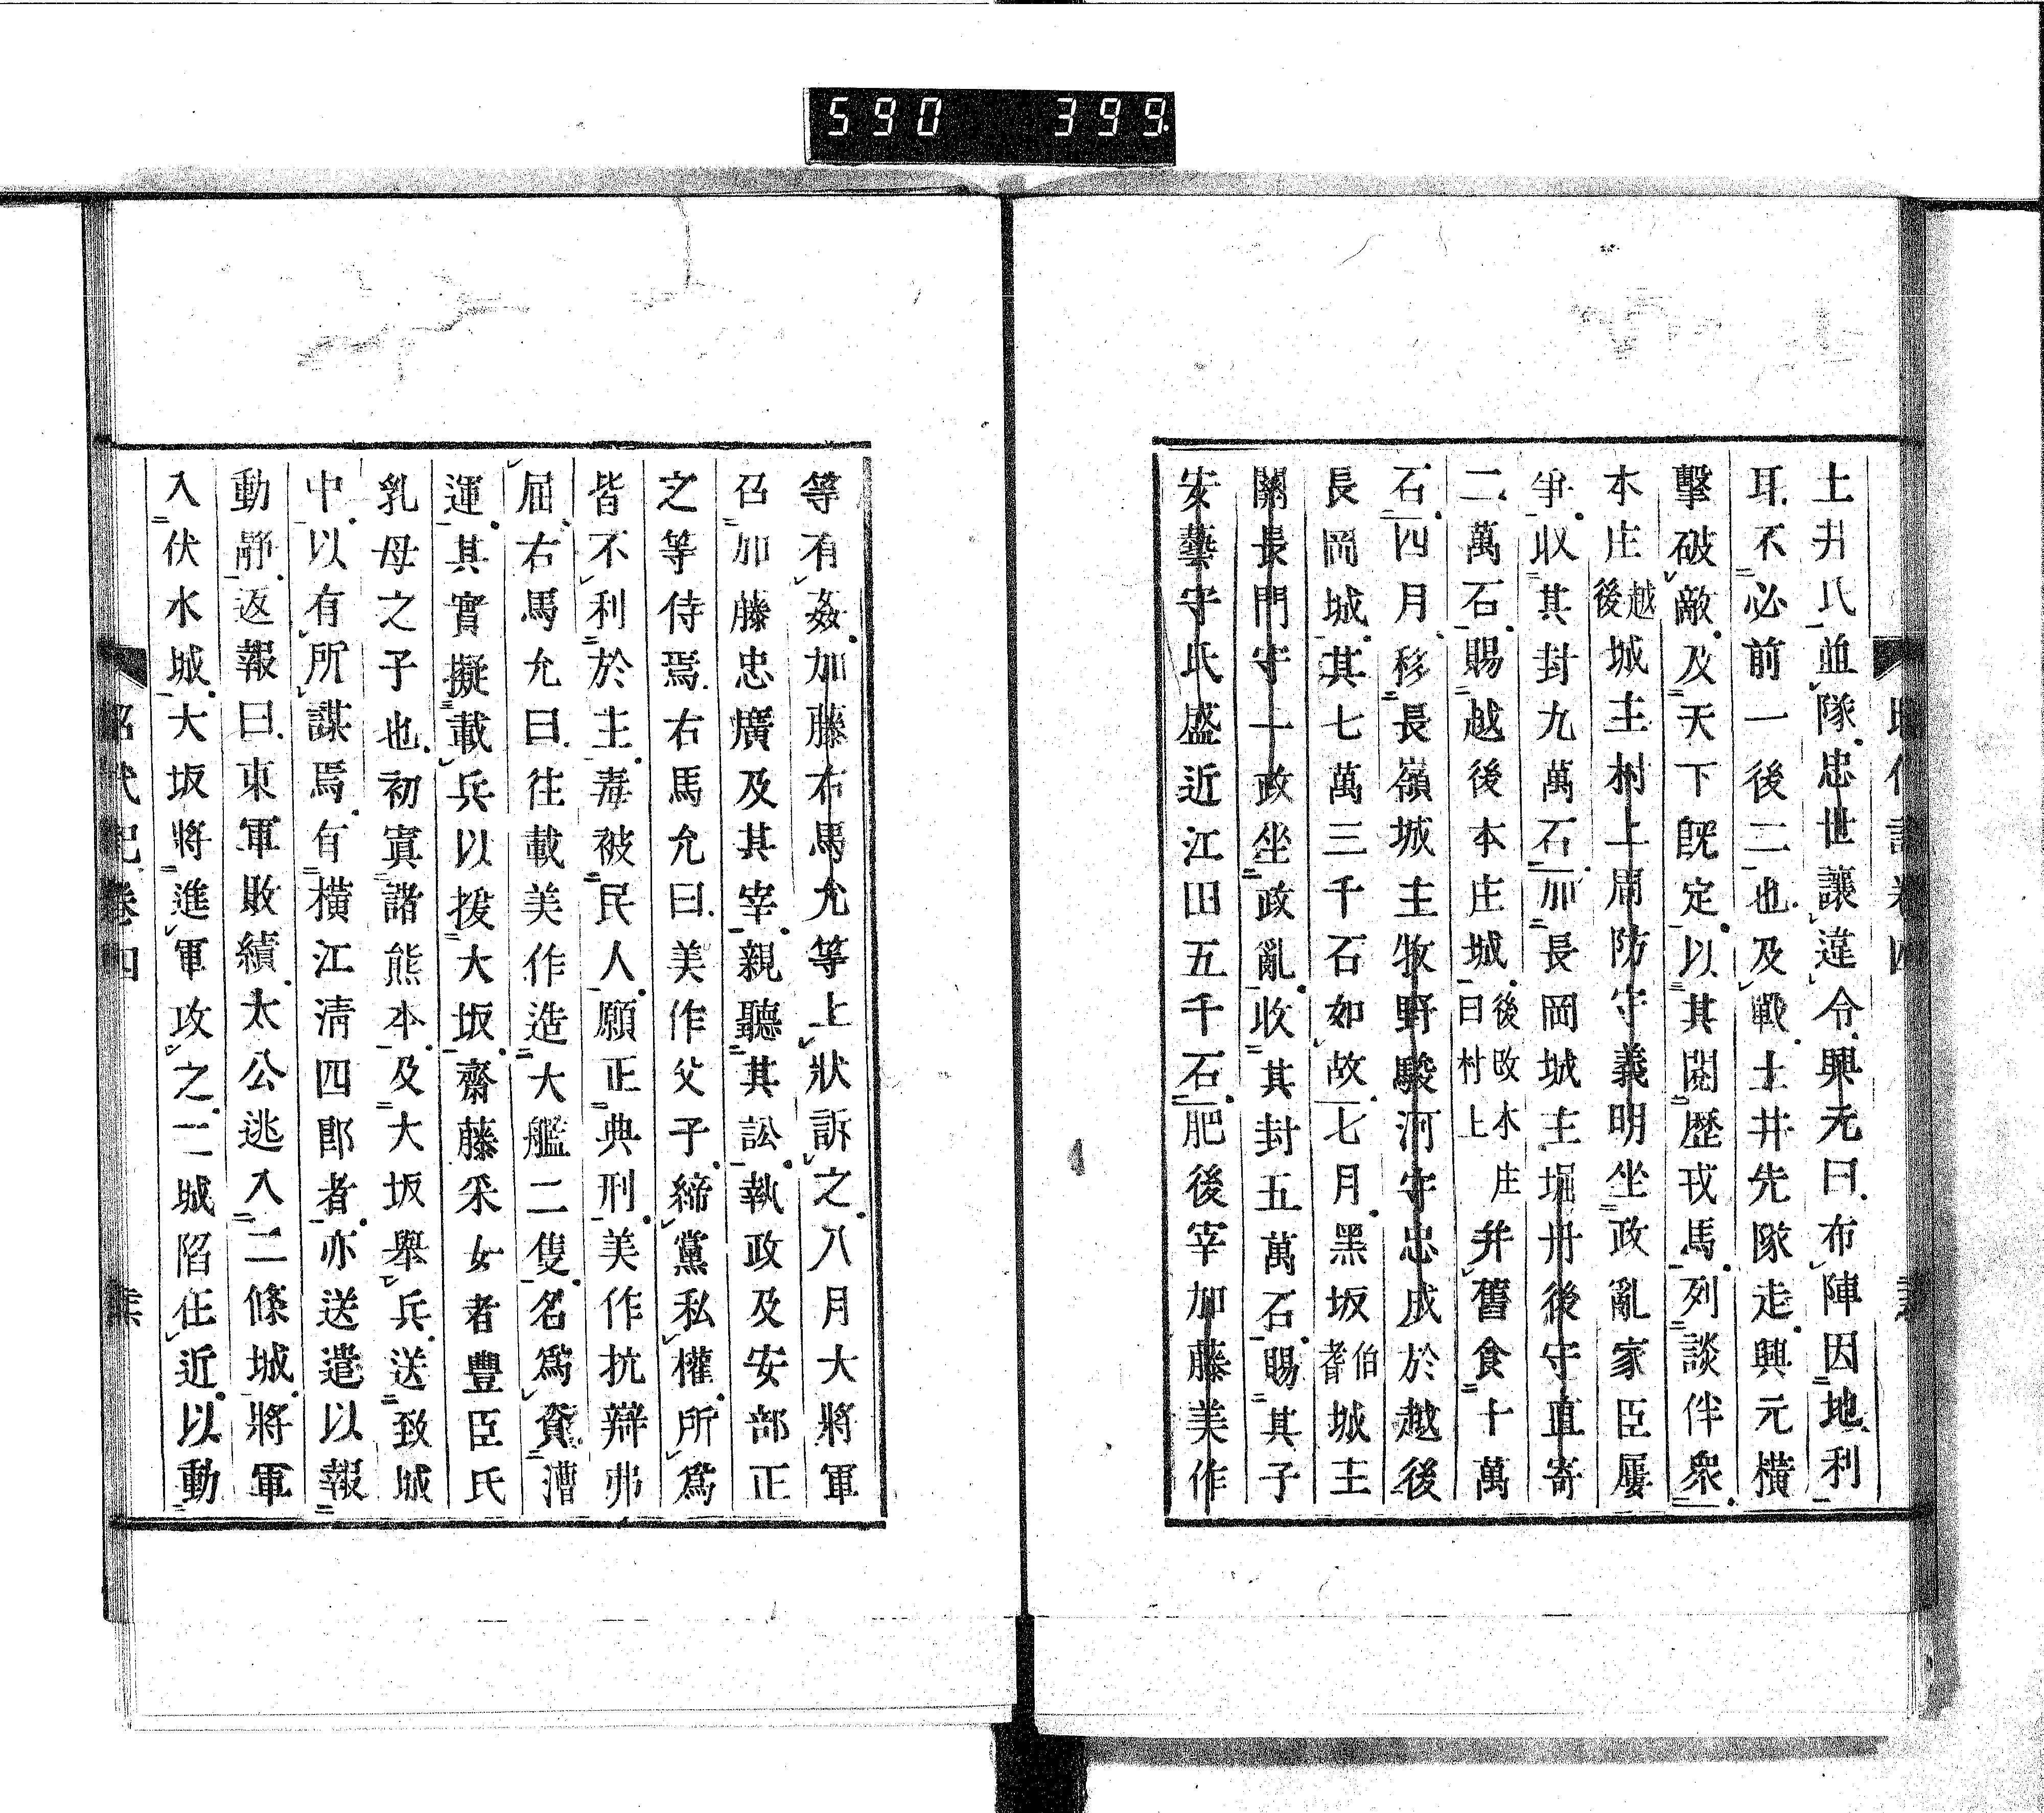 590 399
土井氏並隊忠世讓違令興元曰布陣因地利
耳不必前一後二也及戰土井先隊走興元橫
擊破敵及天下既定以其閱歷戎馬列談伴衆
本庄越後城主村上周防守義明坐政亂家臣屢
爭收其封九萬石加長岡城主堀丹後守直寄
二萬石賜越後本庄城後改本庄曰村上并舊食十萬
石四月移長嶺城主牧野駿河守忠成於越後
長岡城其七萬三千石如故七月黑坂伯耆城主
關長門守一政坐政亂收其封五萬石賜其子
安藝守氏盛近江田五千石肥後宰加藤美作
等有姦加藤右馬允等上狀訴之八月大將軍
召加藤忠廣及其宰親聽其訟執政及安部正
之等侍焉右馬允曰美作父子締黨私權所爲
皆不利於主毒被民人願正典刑美作抗辯弗
屈右馬允曰往載美作造大艦二隻名爲資漕
運其實擬載兵以援大坂齋藤采女者豐臣氏
乳母之子也初寘諸熊本及大坂舉兵送致城
中以有所謀焉有橫江清四郎者亦送遣以報
動靜返報曰東軍敗績太公逃入二條城將軍
入伏水城大坂將進軍攻之二城陷在近以動
昭代記卷四